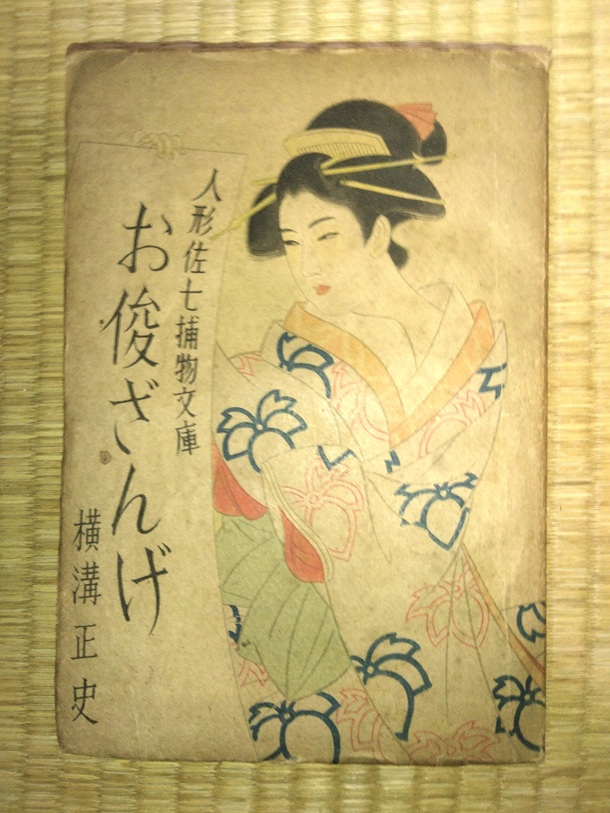 人形佐七捕物文庫
お俊ざんげ
横溝正史